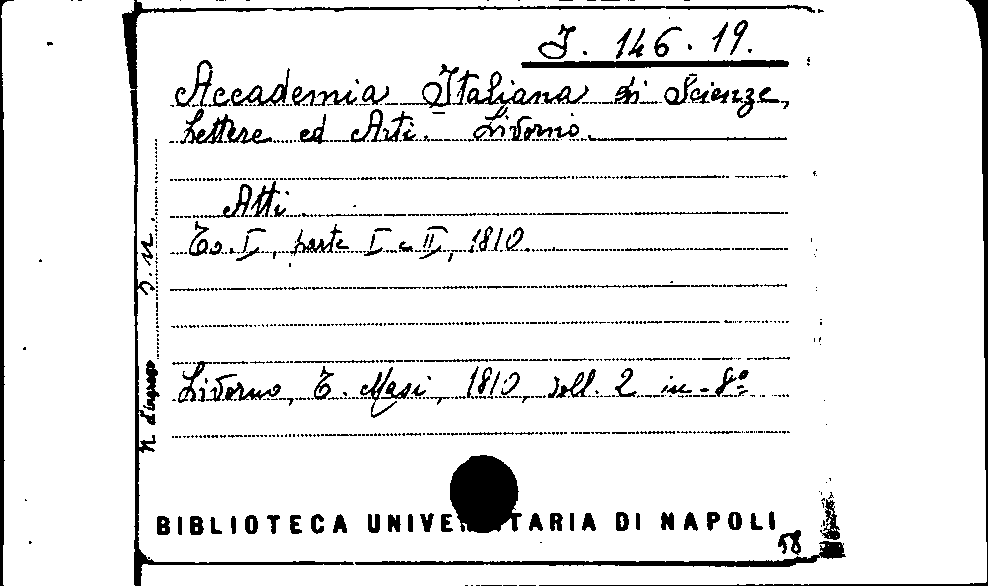 J. 146. 19.
Accademia Italiana di Scienze,
Lettere ed Arti. Livorno.
Atti.
To. I, parte I e II, 1810.
Livorno, T. Masi, 1810, voll. 2 in-8º
N. d'ingresso
BIBLIOTECA UNIVE TARIA DI NAPOLI
58